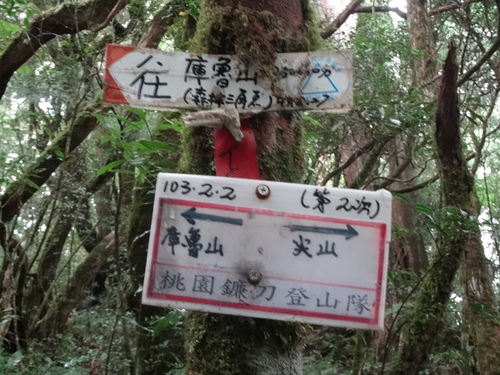 往 庫魯山
(森林三角点)
103.2.2 (第2次)
庫魯山 尖山
桃園鐮刀登山隊